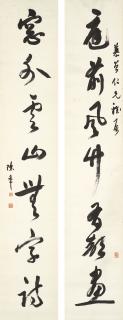 仁兄雅屬
庭前風竹有聲畫
窓外雲山無字詩
陳年